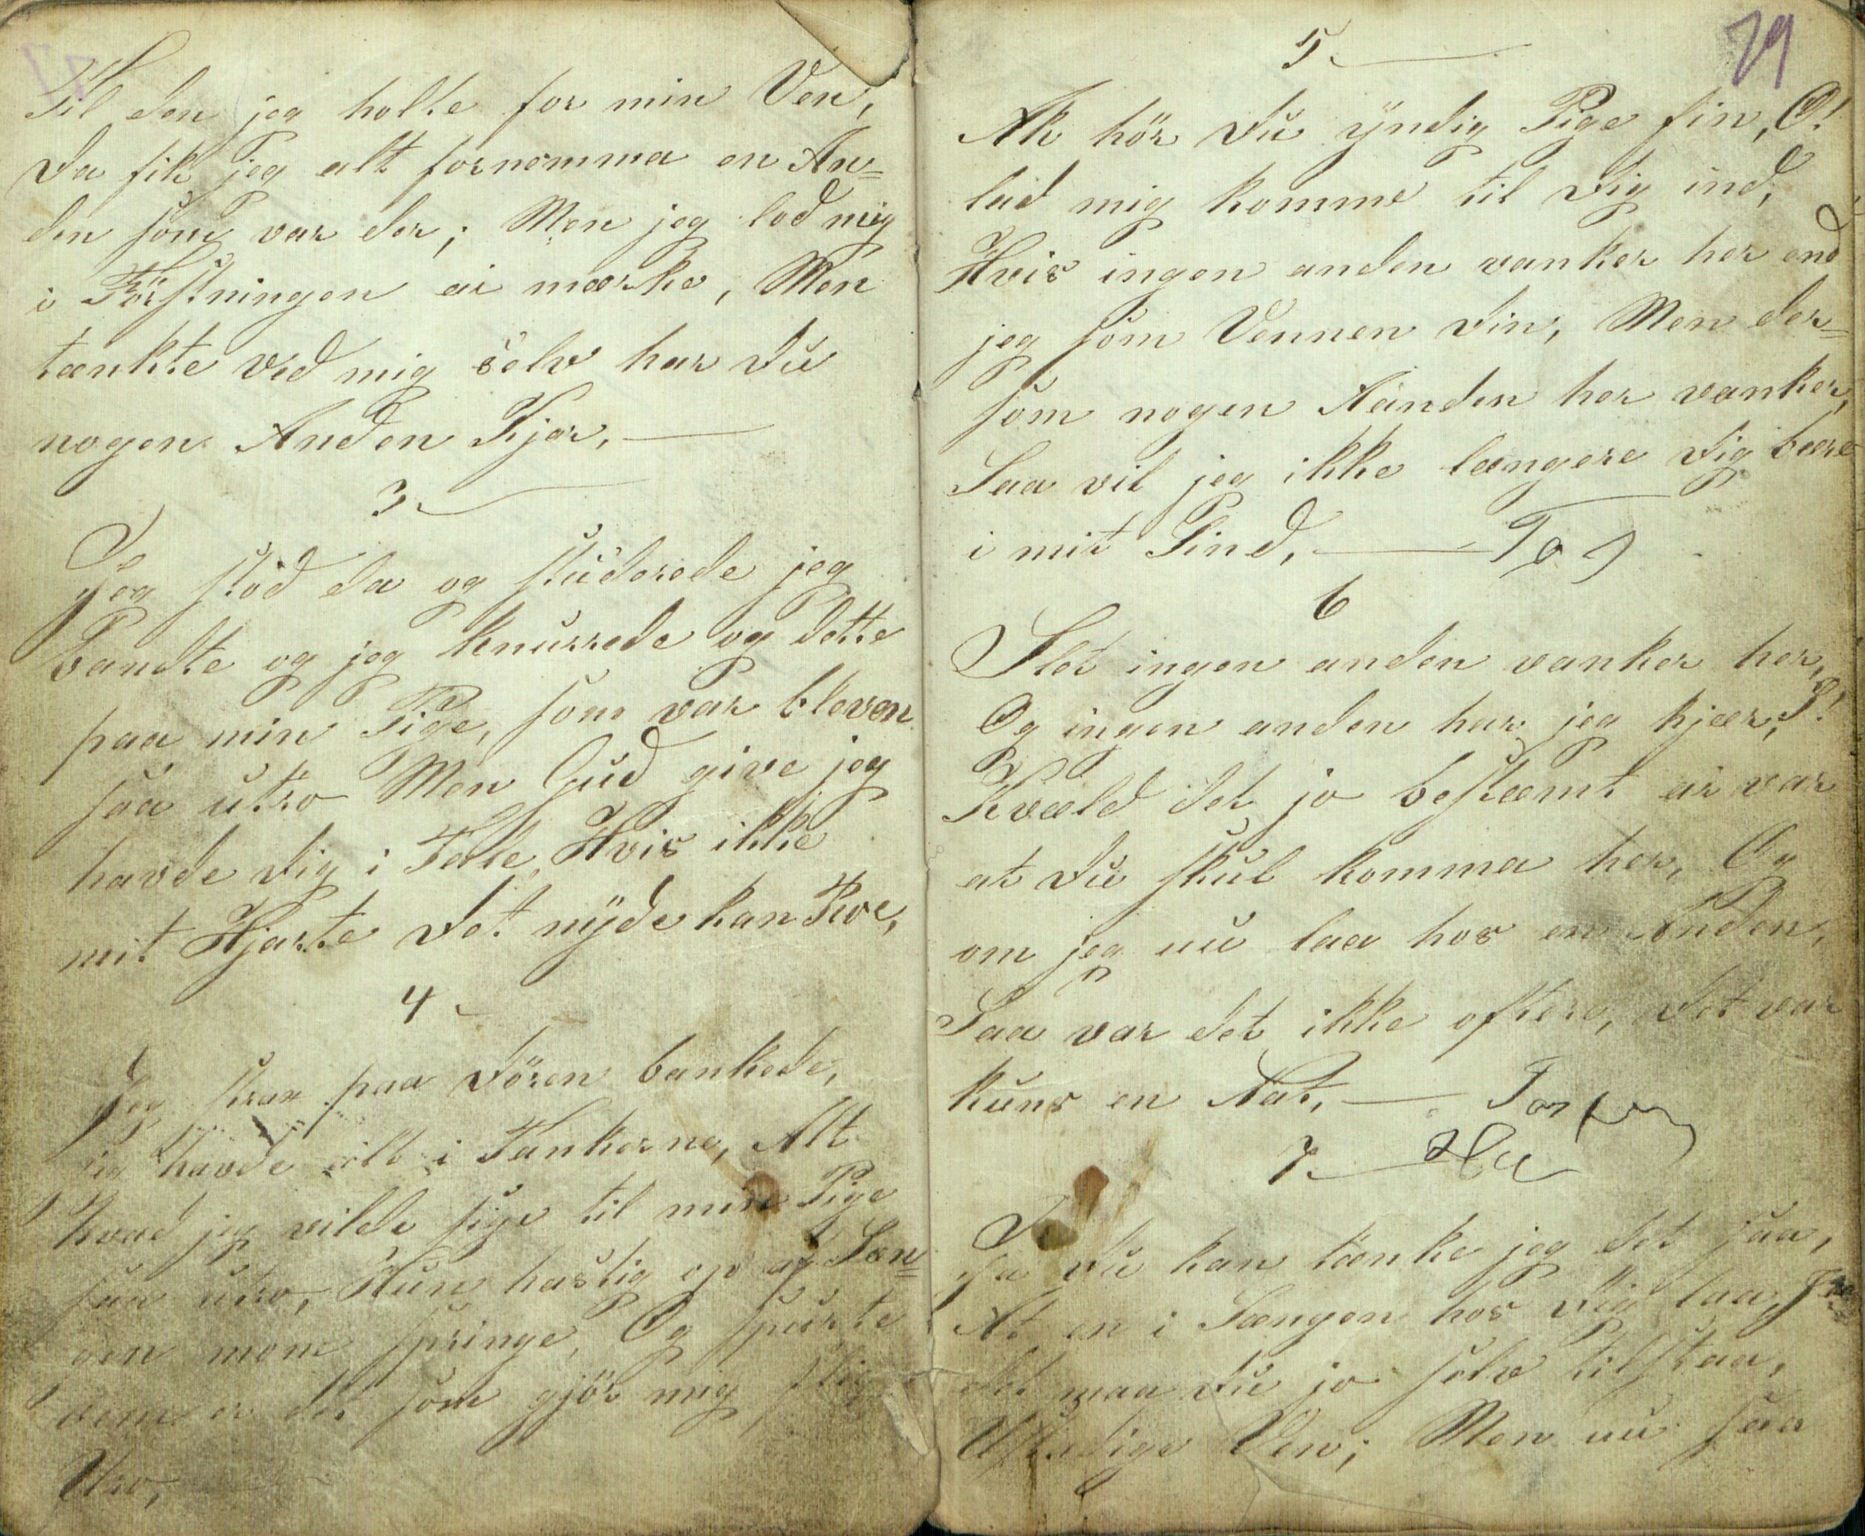 Til den jeg holte for min Ven,
Da fik jeg alt fornemma en An=
den som var der; Men jeg lod mig
i Förstningen ei mærke, Men
tænkte ved mig selv har Du
nogen Anden Kjær,
3
Jeg stod da og studerede jeg
bandte og jeg knurrede og dette
paa min Pige, som var bleven
saa utro Men Gud give jeg
havde dig i Tale, Hvis ikke
mit Hjærte det nyde kan Roe,
4
Jeg strax paa Dören bankede,
jeg havde alt i Tankerne, Alt
hvad jeg vilde sige til min Pige
saa utro, Hun hastig op af Sæn=
gen mone springe, Og spurte
vem er det som gjör mig slig
Uro,
5
79
Ak hör du yndig Pige fin, O!
lad mig komme til dig ind,
Hvis ingen anden vanker her end
jeg som Vennen din, Men der=
som nogen Aanden her vanker,
Saa vil jeg ikke længere dig bære
i mit Sind,
6
Slet ingen anden vanker her,
Og ingen anden har jeg kjær, I!
Kvæld det jo bestæmt ei var
at du skul komma her, Og
om jeg nu laa hos en Anden,
Saa var det ikke oftere, det var
kuns en Nat,
7
Ja du kan tænke jeg det saa,
At en i Sængen hos dig laa,
det maa du jo selv tilstaa,
Ustadige Ven; Men nu saa